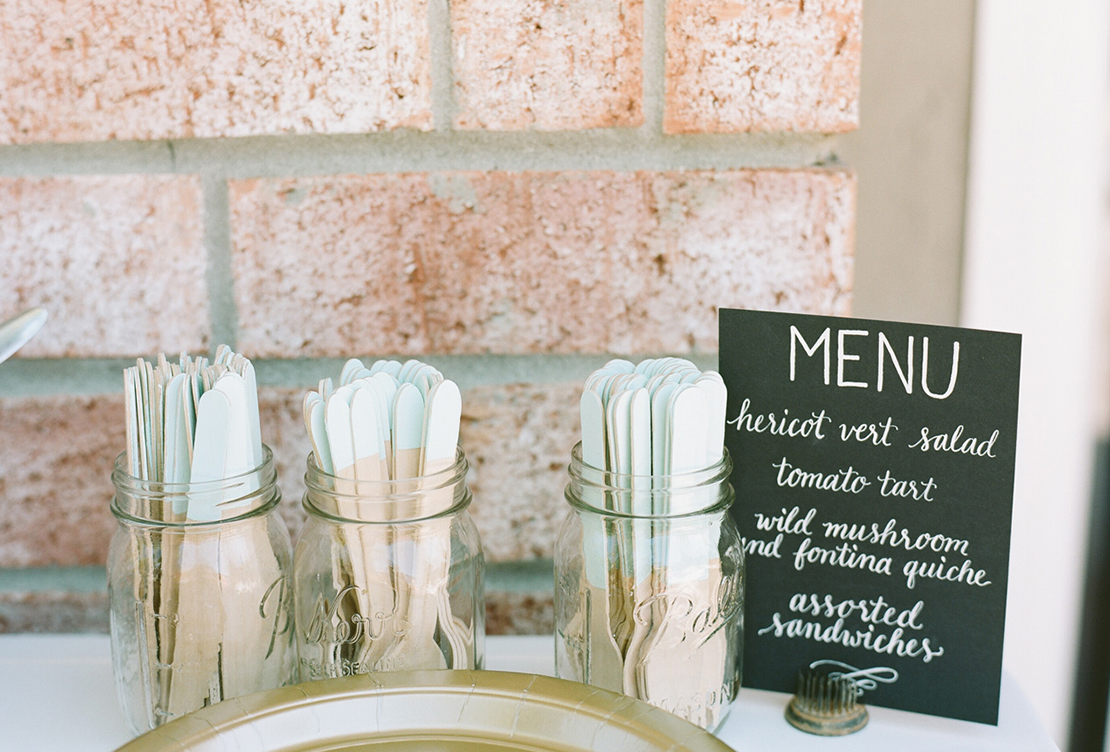 MENU
hericot vert salad
tomato tart
wild mushroom
and fontina quiche
assorted
sandwiches
Kerr
Ball